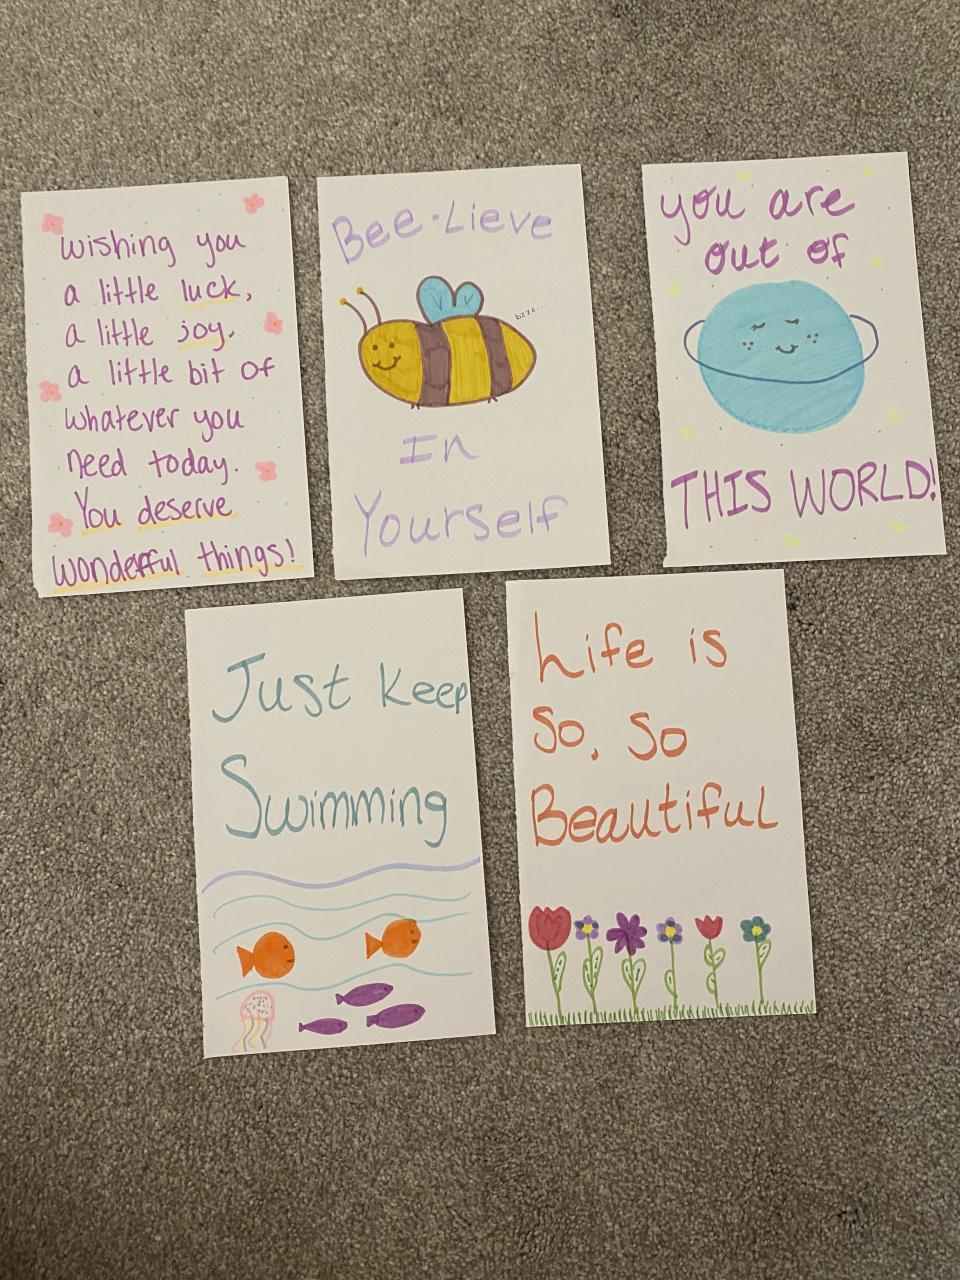 Wishing you
a little luck,
a little joy.
a little bit of
whatever you
need today.
You deserve
wonderful things!
Bee-Lieve
bzzz...
In
Yourself
you are
out of
THIS WORLD!
Just Keep
Swimming
Life is
So, So
Beautiful